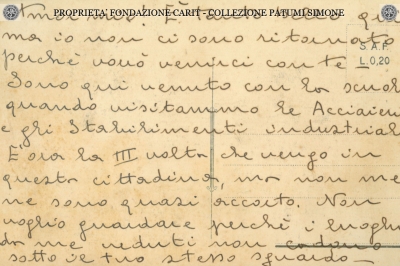 PROPRIETA' FONDAZIONE CARIT - COLLEZIONE PATUMI SIMONE
ma io non ci sono ritornato
S.A.F.
perchè vorrò venirci con te
L. 0,20
Sono qui venuto con la scuola
quando visitammo le Acciaierie
e gli Stabilimenti industriali
È ora la III volta che vengo in
questa cittadina, ma non me
ne sono quasi accorto. Non
voglio guardare perchè i luoghi
da me veduti non cadono
sotto il tuo stesso sguardo